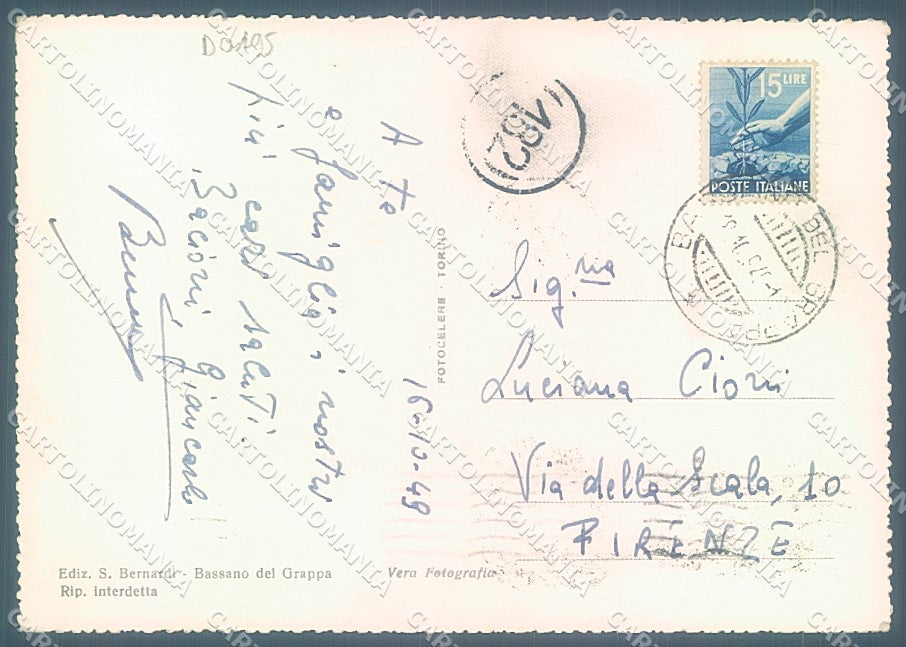 D0195
A te
e famiglia i nostri
più cari saluti.
Bacioni Giancarlo
16-10-49
182
15 LIRE
POSTE ITALIANE
BASSANO DEL GRAPPA
FOTOCELERE - TORINO
Sig.na
Luciana Cioni
Via della Scala, 10
FIRENZE
Ediz. S. Bernardi - Bassano del Grappa
Vera Fotografia
Rip. interdetta
CARTOLINOMANIA